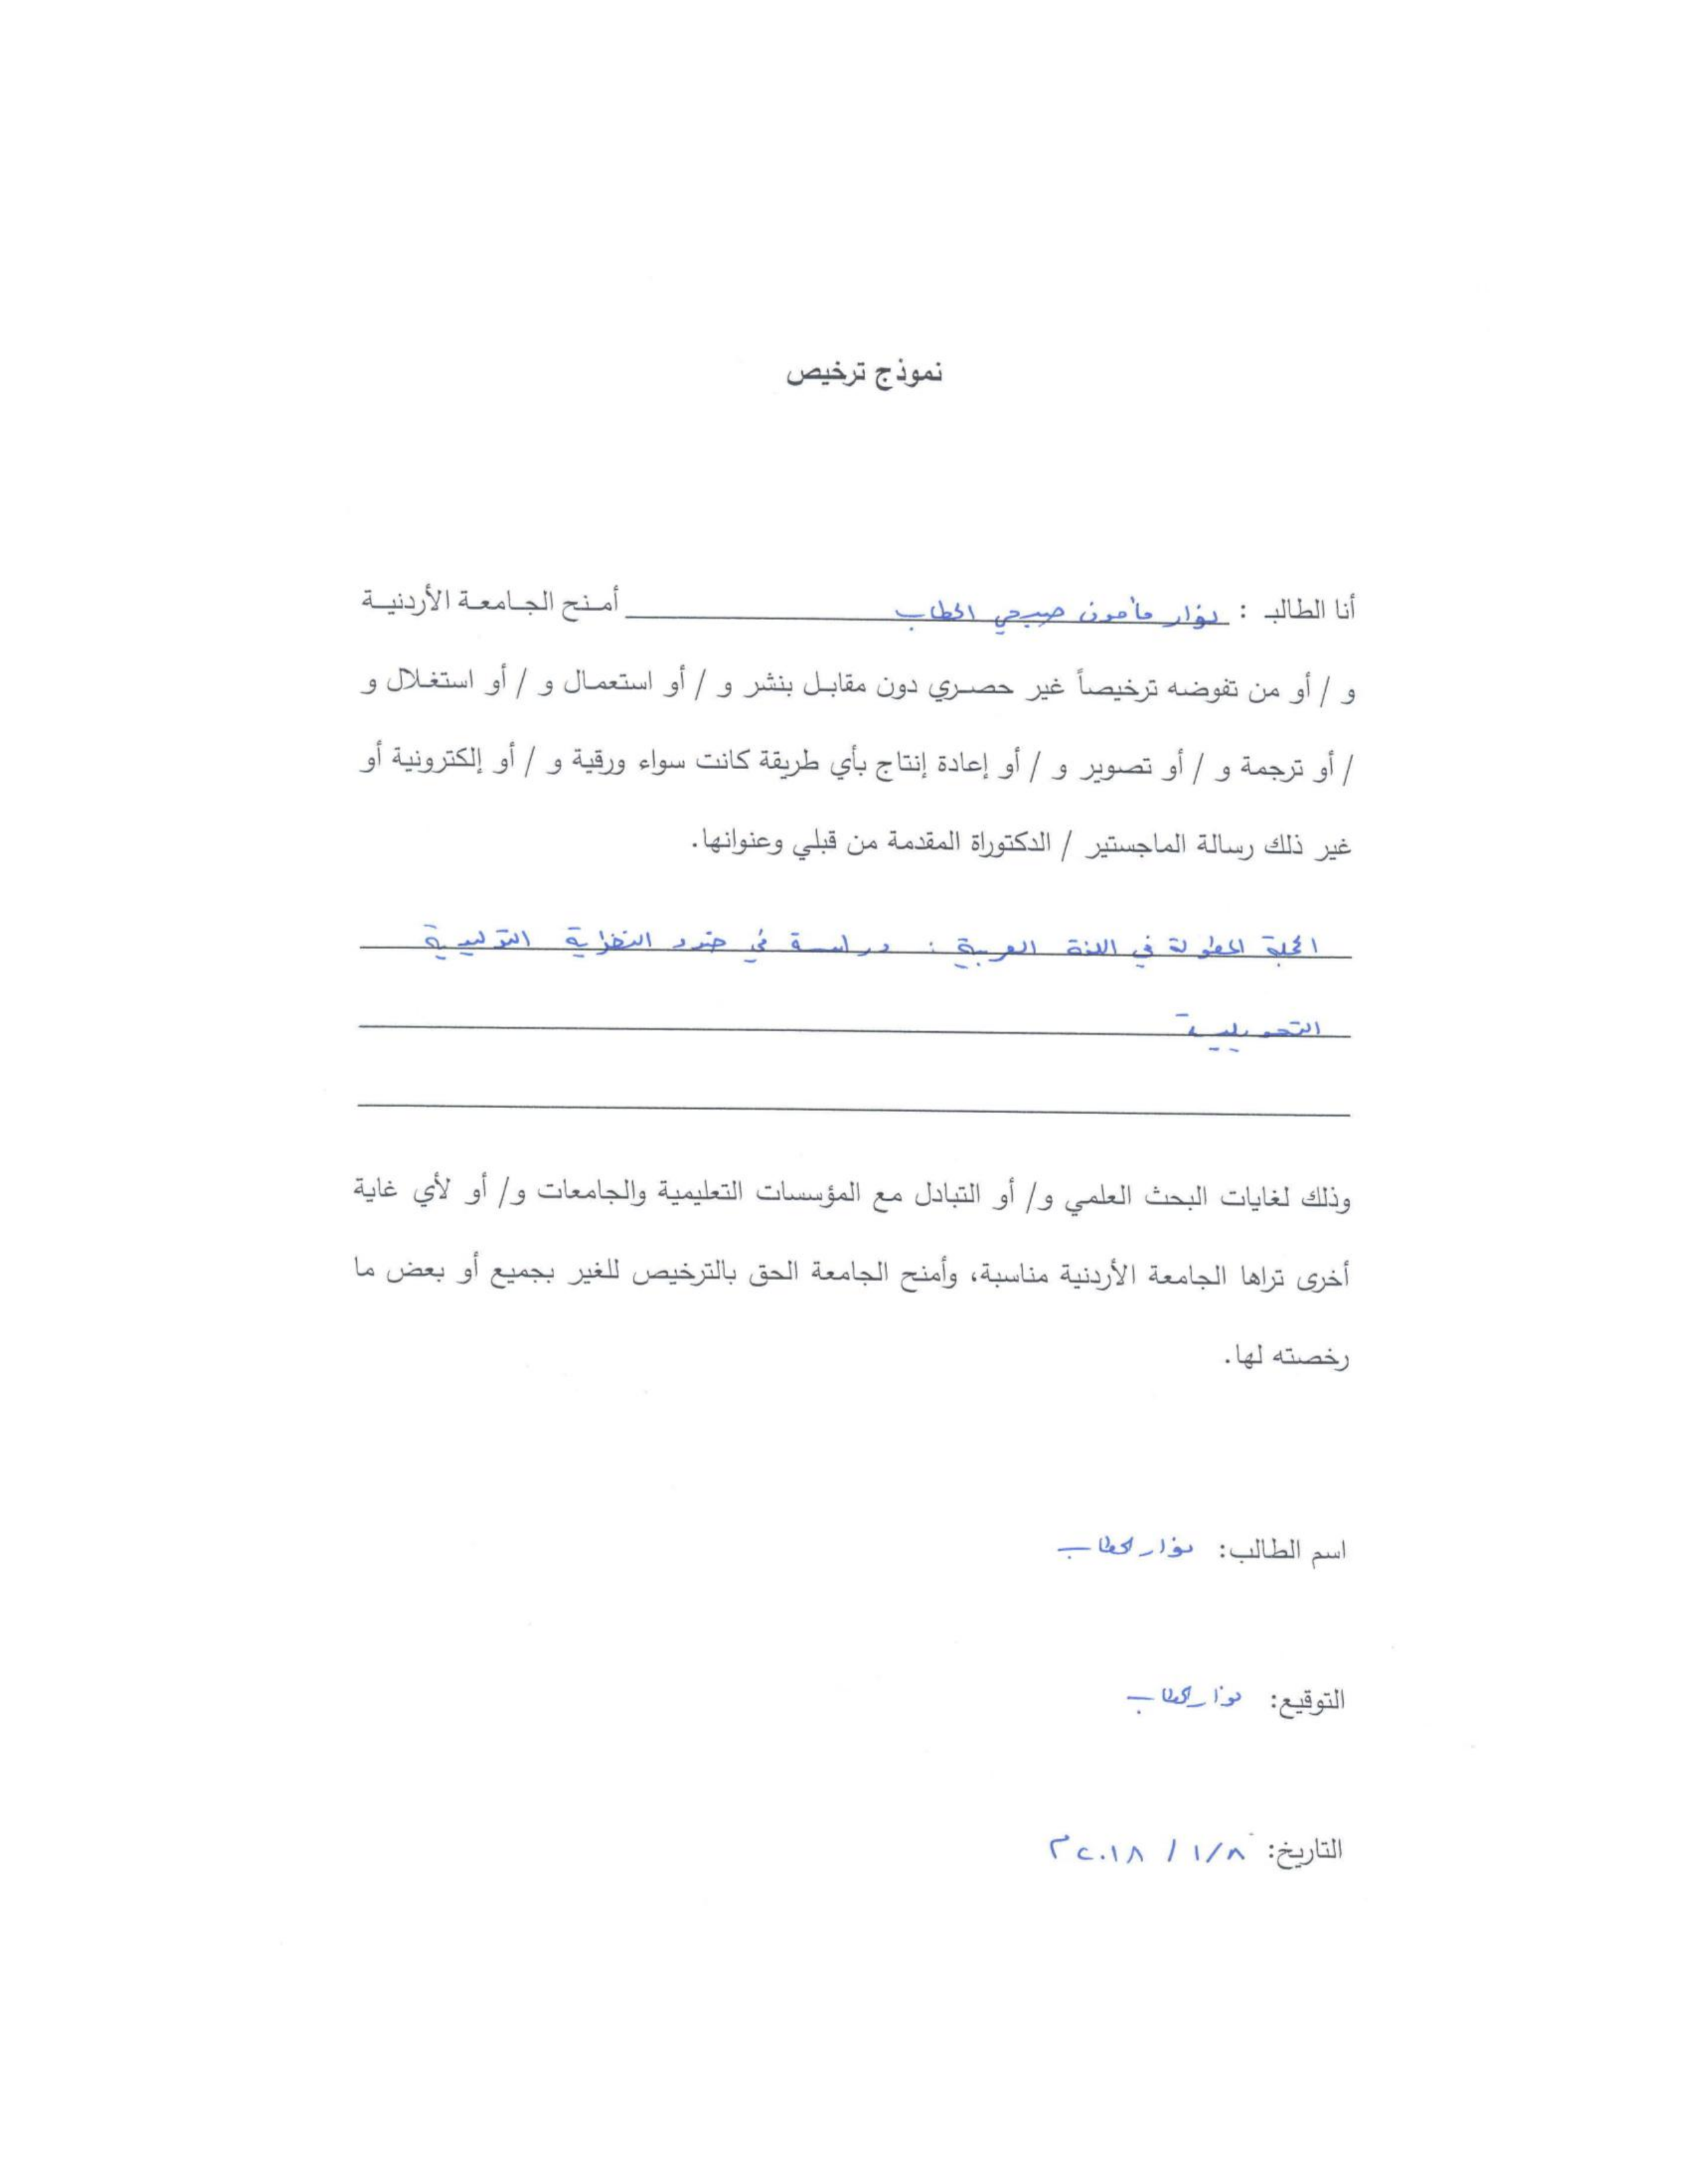 نموذج ترخيص
أنا الطالب : نزار مأمون صبحي الحطاب أمنح الجامعة الأردنية
و / أو من تفوضه ترخيصاً غير حصري دون مقابل بنشر و / أو استعمال و / أو استغلال و
/ أو ترجمة و / أو تصوير و / أو إعادة إنتاج بأي طريقة كانت سواء ورقية و / أو إلكترونية أو
غير ذلك رسالة الماجستير / الدكتوراة المقدمة من قبلي وعنوانها.
الجملة المطولة في اللغة العربية : دراسة في ضوء النظرية التوليدية
التحويلية
وذلك لغايات البحث العلمي و/ أو التبادل مع المؤسسات التعليمية والجامعات و/ أو لأي غاية
أخرى تراها الجامعة الأردنية مناسبة، وأمنح الجامعة الحق بالترخيص للغير بجميع أو بعض ما
رخصته لها.
اسم الطالب: الحطاب
التوقيع: الحطاب
التاريخ: ٨/١ / ٢٠١٨م